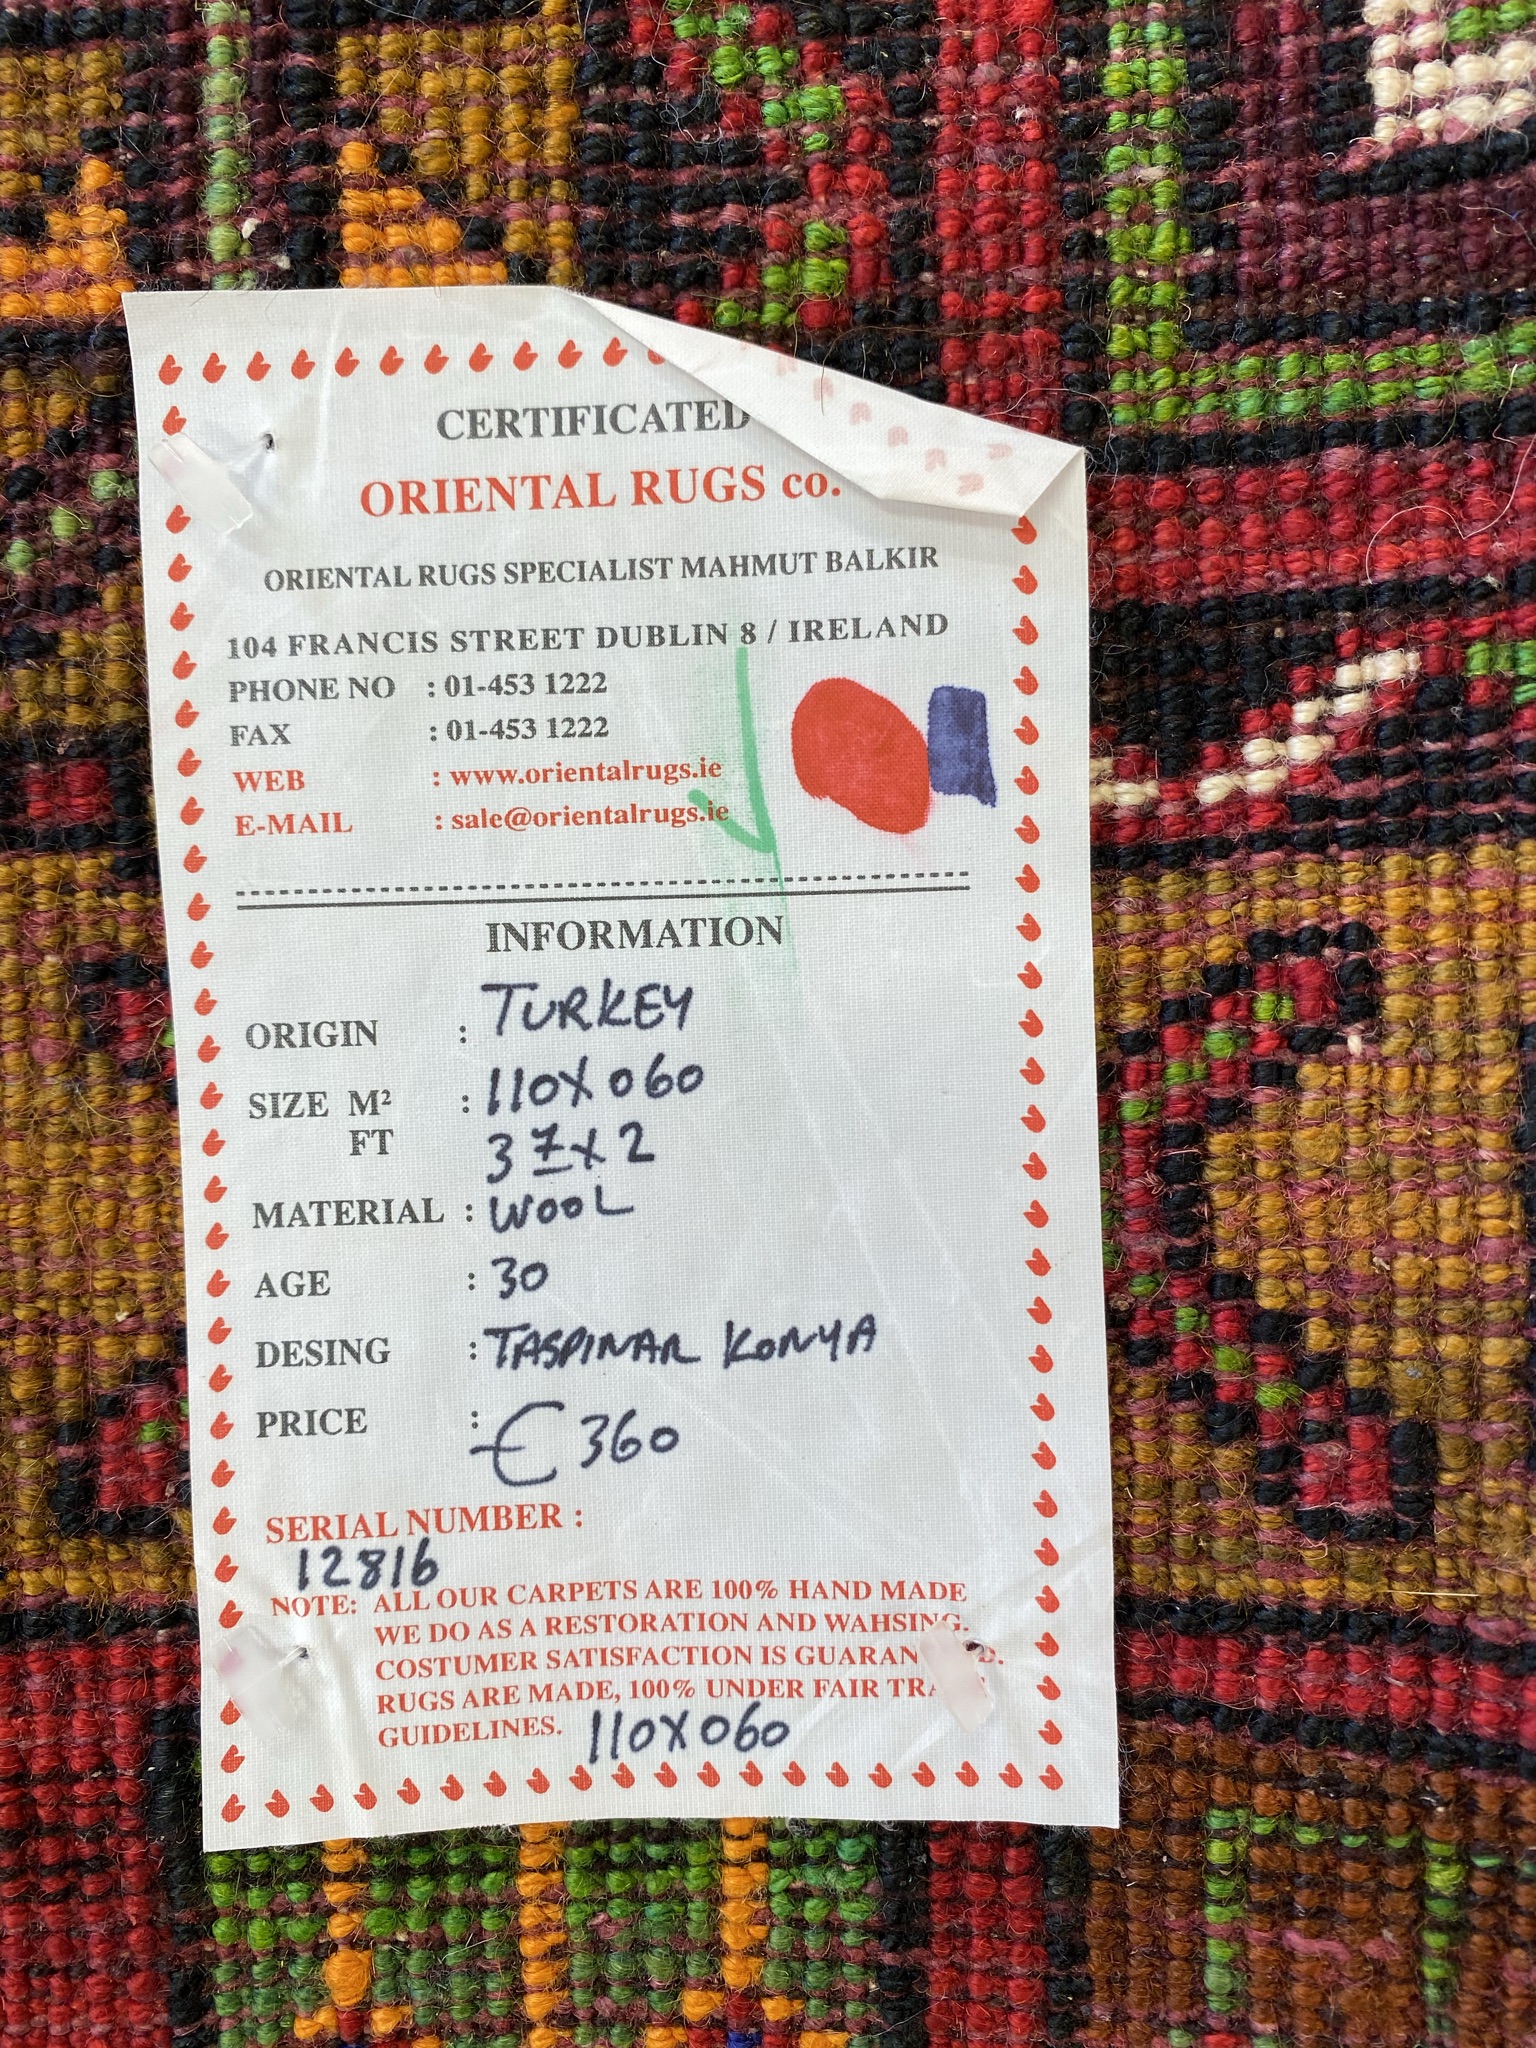 CERTIFICATED
ORIENTAL RUGS co.
ORIENTAL RUGS SPECIALIST MAHMUT BALKIR
104 FRANCIS STREET DUBLIN 8 / IRELAND
PHONE NO : 01-453 1222
FAX : 01-453 1222
WEB : www.orientalrugs.ie
E-MAIL : sale@orientalrugs.ie
INFORMATION
ORIGIN : TURKEY
SIZE M² : 110X060
FT 3 7 X 2
MATERIAL : WOOL
AGE : 30
DESING : TASPINAR KONYA
PRICE : € 360
SERIAL NUMBER :
12816
NOTE: ALL OUR CARPETS ARE 100% HAND MADE
WE DO AS A RESTORATION AND WAHSING.
COSTUMER SATISFACTION IS
RUGS ARE MADE, 100% UNDER FAIR
GUIDELINES. 110X060